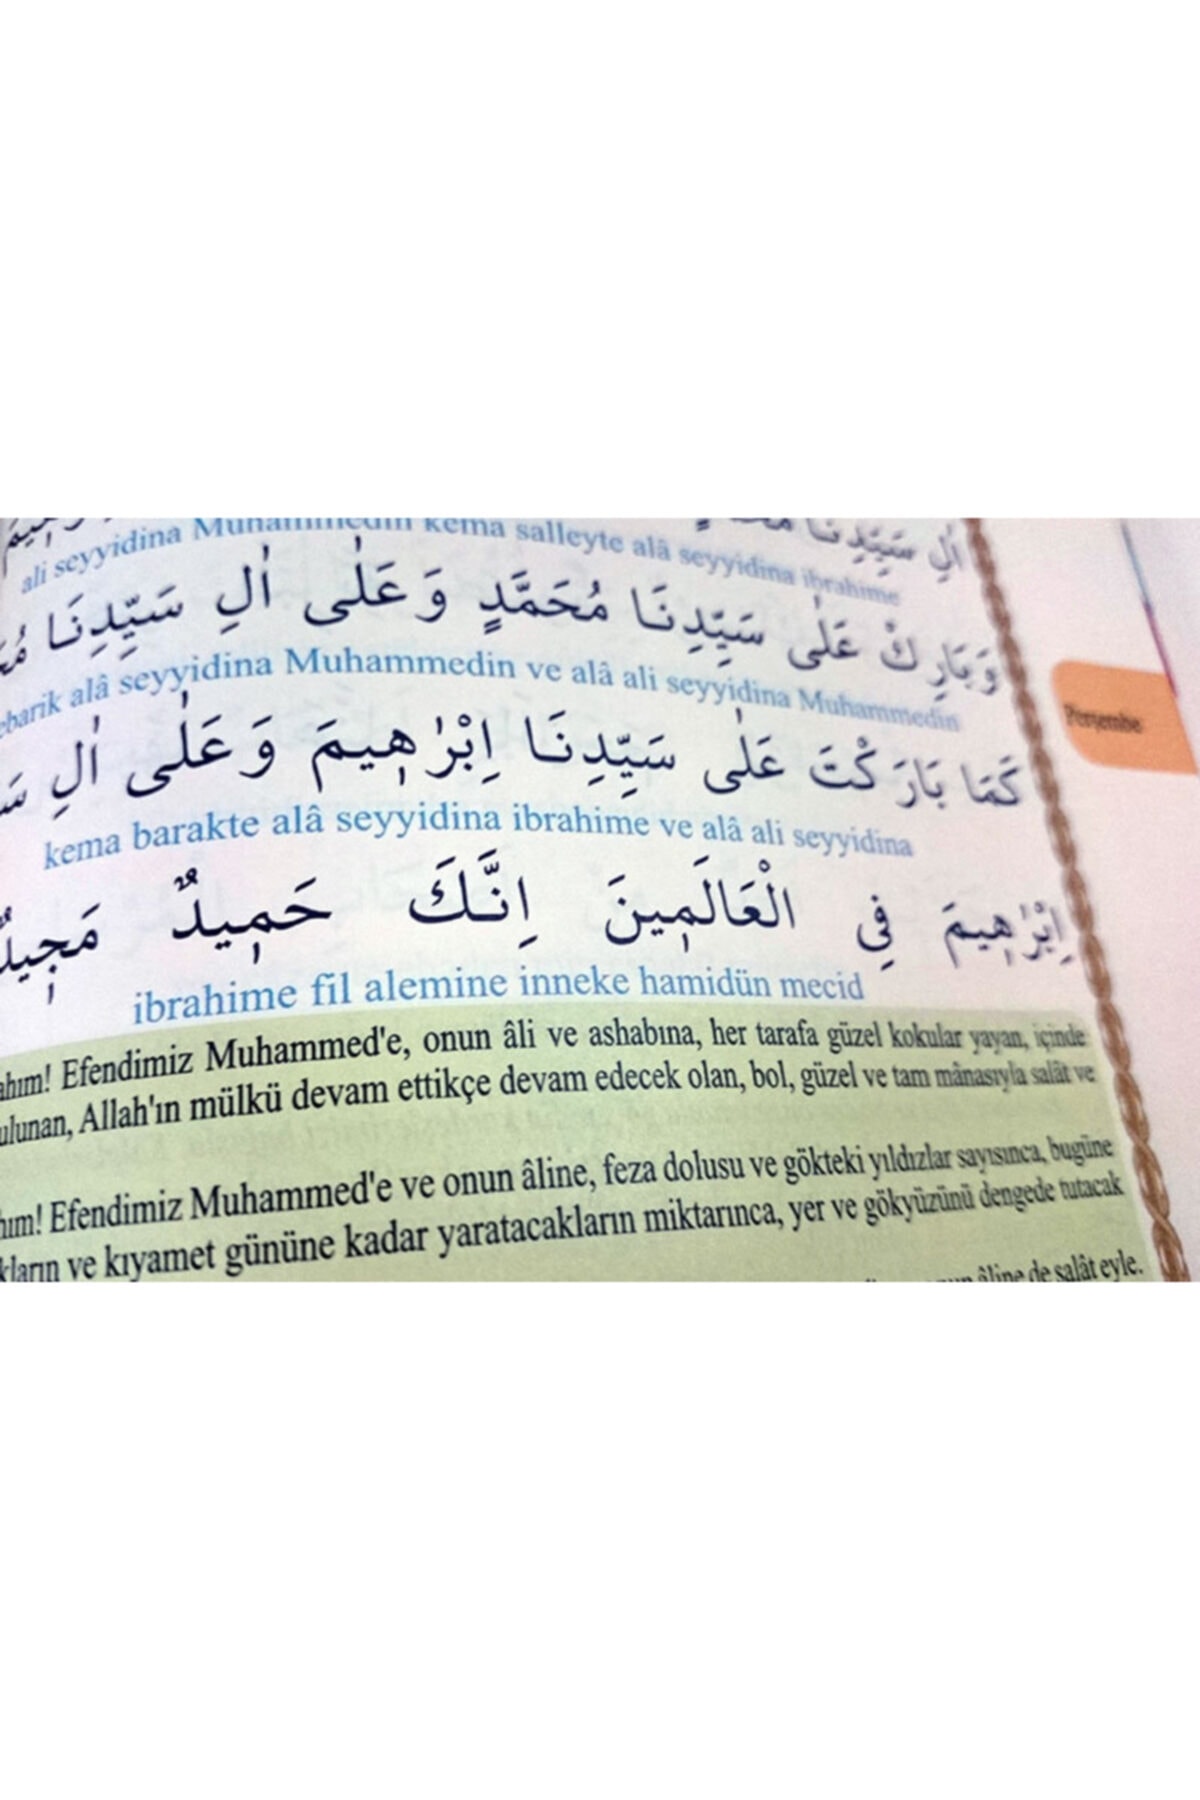 اٰلِ سَيِّدِنَا
ali seyyidina Muhammedin kema salleyte alâ seyyidina ibrahime
وَبَارِكْ عَلٰى سَيِّدِنَا مُحَمَّدٍ وَعَلٰى اٰلِ سَيِّدِنَا
alâ seyyidina Muhammedin ve alâ ali seyyidina Muhammedin
كَمَا بَارَكْتَ عَلٰى سَيِّدِنَا اِبْرٰهٖيمَ وَعَلٰى اٰلِ
kema barakte alâ seyyidina ibrahime ve alâ ali seyyidina
اِبْرٰهٖيمَ فِي الْعَالَمٖينَ اِنَّكَ حَمٖيدٌ مَجٖيدٌ
ibrahime fil alemine inneke hamidün mecid
Perşembe
Efendimiz Muhammed'e, onun âli ve ashabına, her tarafa güzel kokular yayan, içinde
Allah'ın mülkü devam ettikçe devam edecek olan, bol, güzel ve tam mânasıyla salât ve
Efendimiz Muhammed'e ve onun âline, feza dolusu ve gökteki yıldızlar sayısınca, bugüne
ve kıyamet gününe kadar yaratacakların miktarınca, yer ve gökyüzünü dengede tutacak
âline de salât eyle.